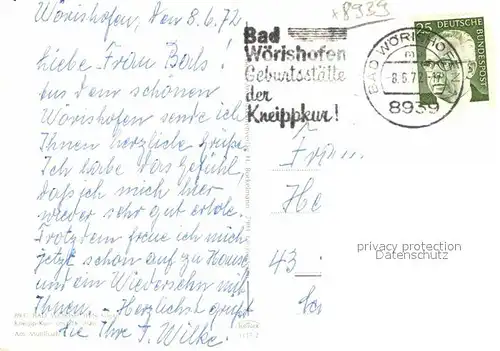 Wörishofen, den 8.6.72
Liebe Frau Bals!
Aus dem schönen
Wörishofen sende ich
Ihnen herzliche Grüße.
Ich habe das Gefühl,
daß ich mich hier
wieder sehr gut erhole.
Trotzdem freue ich mich
jetzt schon auf zu Hause
und ein Wiedersehn mit
Ihnen. - Herzlichst grüßt
Sie Ihre J. Wilke.
*8939
Bad
Wörishofen
Geburtsstätte
der
Kneippkur!
BAD WÖRISHOFEN
-8.6.72-17
8939
25 DEUTSCHE BUNDESPOST
Frau
He
43
privacy protection
Datenschutz